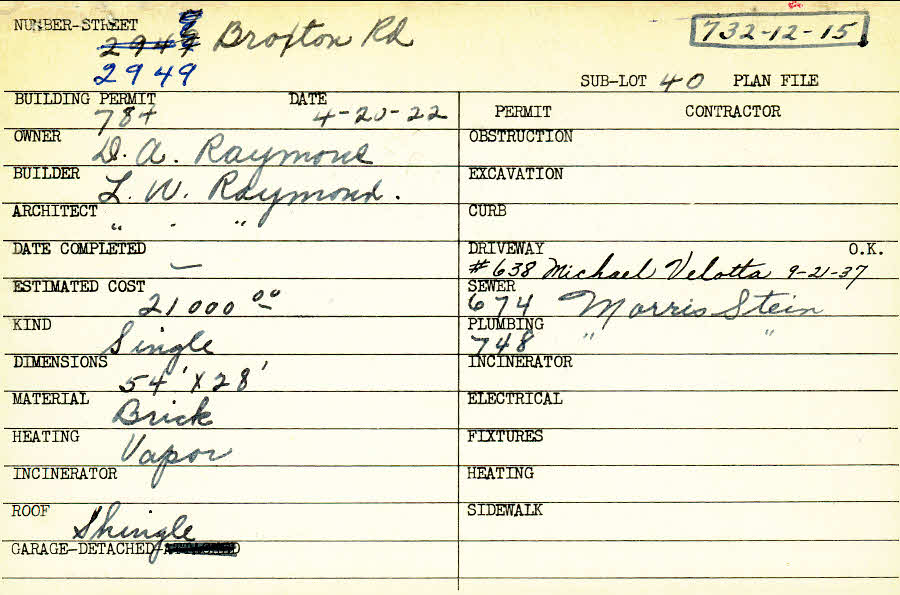 NUMBER-STREET 2949 Broxton Rd 732-12-15
2949
SUB-LOT 40 PLAN FILE
BUILDING PERMIT 784 DATE 4-20-22
OWNER D. A. Raymond
BUILDER L. W. Raymond.
ARCHITECT " - "
DATE COMPLETED —
ESTIMATED COST 21000 00
KIND Single
DIMENSIONS 54' X 28'
MATERIAL Brick
HEATING Vapor
INCINERATOR
ROOF Shingle
GARAGE-DETACHED-
PERMIT CONTRACTOR
OBSTRUCTION
EXCAVATION
CURB
DRIVEWAY O.K.
#638 Michael Velotta 9-21-37
SEWER
674 Morris Stein
PLUMBING
748 " "
INCINERATOR
ELECTRICAL
FIXTURES
HEATING
SIDEWALK